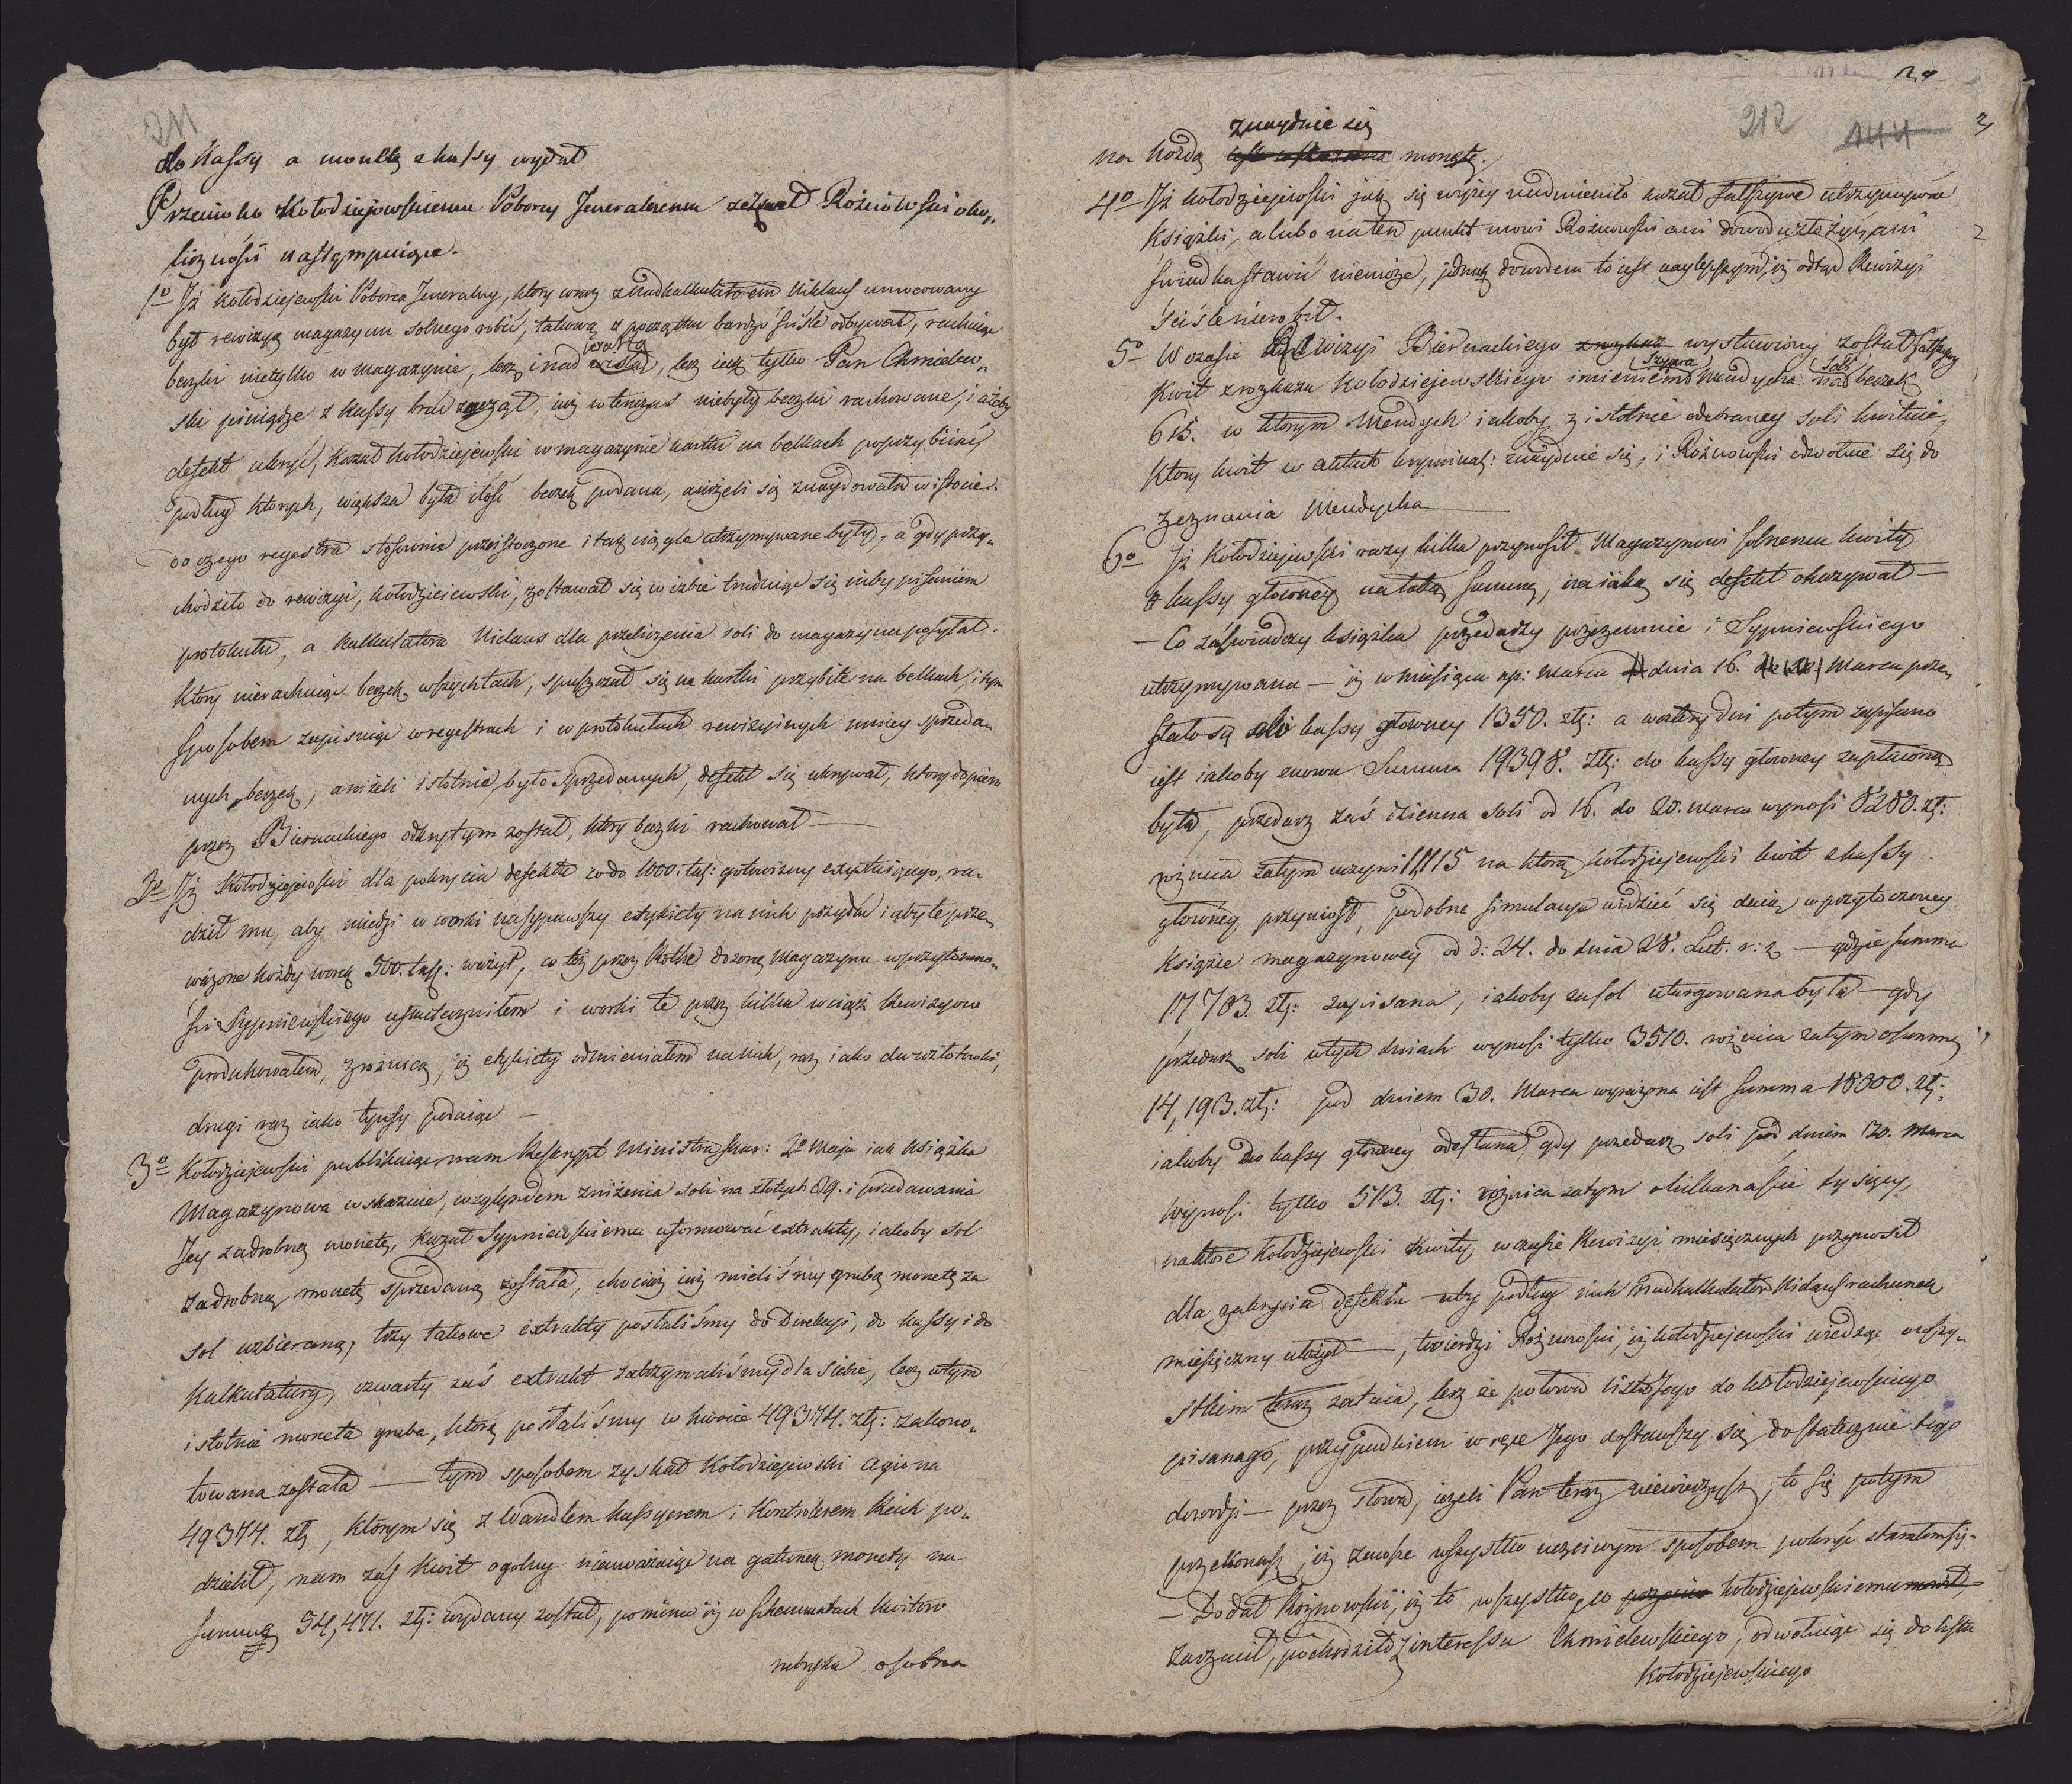 211
do Kassy a monetę z kassy wydał
Przeciwko Kołodziejowskiemu Poborcy Jeneralnemu zeznał Rożnowski oko„
liczności nastympuiące.
1o Jż Kołodziejewski Poborca Jeneralny, ktory wraz z Nadkalkulatorem Niklaus umocowany
był rewizyą magazynu solnego robić, takową z początku bardzo ściśle odbywał, rachuiąc
beczki nietylko w magazynie, lecz i nad wartą, lecz iak tylko Pan Chmielew„
ski piniądze z kassy brać zaczął, iuż wtenczas niebyły beczki rachowane, i ażeby
defekt ukryć, kazał Kołodziejewski w magazynie kartki na belkach poprzybiiać,
podług ktorych, większa była ilość beczek podana, aniżeli się znaydowała w istocie.
do czego regestra stosownie przeistoczone i tak ciągle utrzymywane były, a gdy przy„
chodziło do rewizyi, Kołodziejewski, zostawał się w izbie trudniąc się niby pisaniem
protokułu, a kalkulatora Niclaus dla przeliczenia soli do magazynu posyłał.
ktory nierachuiąc beczek wszychtach, spuszczał się na kartki przybite na belkach, i tym
sposobem zapisuiąc w regestrach i w protokułach rewizyinych mniey sprzeda„
nych beczek, aniżeli istotnie było sprzedanych, defekt się ukrywał, ktory dopiero
przez Biernackiego odkrytym został, ktory beczki rachował —
2o Jż Kołodziejewski dla pokrycia defektu co do 1000. tal: gotowizny exystuiącego, ra„
dził mu, aby miedzi w worki nasypawszy etykiety na nich przydał i aby te prze„
wiązone każdy worek 500. tal: ważył, co też przez Kothe dozorcę Magazynu w przytomno„
ści Sypniewskiego uskuteczniłem i worki te przez kilka wciąż Rewizyow
produkowałem, z rożnicą, iż etykiety odmieniałem na nich, raz iako dwuzłotowki,
drugi raz iako tynfy podaiąc —
3o Kołodziejewski publikuiąc nam Reskrypt Ministra Skar: 2o Maja iak Książka
Magazynowa wskazuie, względem zniżenia soli na złotych 89. i przedawania
Jey za drobną monetę, kazał Sypniewskiemu uformować extrakty, iakoby sol
za drobną monetę sprzedaną została, chociaż iuż mieliśmy grubą monetę za
sol uzbieraną, trzy takowe extrakty posłaliśmy do Direkcyi, do kassy i do
kalkulatury, czwarty zaś extrakt zatrzymaliśmy dla siebie, lecz w tym
istotnie moneta gruba, którą posłaliśmy w kwocie 49374. złt: zakono„
towana została — tym sposobem zyskał Kołodziejewski agio na
49374. złt, ktorym się z Wandlem kassyerem i kontrolerem Reich po„
dzielił, nam zaś kwit ogolny nieuważaiąc na gatunek monety na
summę 54,471. złt: wydany został, pomimo iż w schemmatach kwitow
rubryka osobna
212
144
na każdą znayduie się monetę.
4o Jż Kołodziejewski jak się wyżey nadmieniło kazał fałszywe utrzymywać
książki, a lubo na ten punkt mowi Rożnowski ani dowodu złożyć, ani
świadka stawić niemoże, jednak dowodem to iest naylepszym, iż odtąd Rewizyi
ściśle nierobił.
5o W czasie Rewizyi Biernackiego wystawiony został fałszywy
kwit z rozkazu Kołodziejewskiego imieniem Szypra Mendycha na beczek Soli
615. w ktorym Mendych iakoby z istotnie odebraney soli kwituie,
ktory kwit w aktach kryminal: znayduie się, i Rożnowski odwołuie się do
zeznania Mendycha
6o Jż Kołodziejewski razy kilka przynosił Magazynowi solnemu kwity
z kassy głowney na tatą summę, na iaką się defekt okazywał —
— Co zaświadczy książka przedaży przezemnie i Sypniewskiego
utrzymywana — iż w miesiącu np: Marca dnia 16. Marca prze„
słało się do kassy głowney 1350. złt: a w cztery dni potym zapisano
iest iakoby znowu Summa 19398. złt: do kassy głowney zapłaconą
była, przedarz zaś dzienna soli od 16. do 20. Marca wynosi 8280. złt:
rożnica zatym uczyni 11115 na ktorą Kołodziejewski kwit z kassy
głowney przyniosł, podobne simulacye widzieć się daią w przytoczoney
książce magazynowey od d: 24. do dnia 28. Lut: r: z — gdzie summa
17703. złt: zapisana, iakoby za sol utargowana była — gdy
przedarz soli w tych dniach wynosi tylko 3510. rożnica zatym o summę
14,193. złt: pod dniem 30. Marca wyrażona iest summa 18000. złt:
iakoby do kassy głowney odesłana, gdy przedarz soli pod dniem 30. Marca
wynosi tylko 513. złt: rożnica zatym o kilkanaście tysięcy,
na które Kołodziejewski kwity, w czasie Rewizyi miesięcznych przynosił
dla zakrycia defektu aby podług nich Nadkalkulator Niclaus rachunek
miesięczny ułożył —, twierdzi Rożnowski, iż Kołodziejewski wiedząc o wszy„
stkim teraz zataia, lecz że połowa listu Jego do Kołodziejewskiego
pisanego, przypadkiem w ręce Jego dostawszy się, dostatecznie tego
dowodzi — przez słowa, iezeli Pan teraz niewierzysz, to się potym
przekonasz, iż zawsze wszystko uczciwym sposobem pokryć starałem się.
— Dodał Rożnowski, iż to wszystko, co Kołodziejewskiemu
zarzucił, pochodziło z interessu Chmielewskiego, odwołuiąc się do listu
Kołodziejewskiego